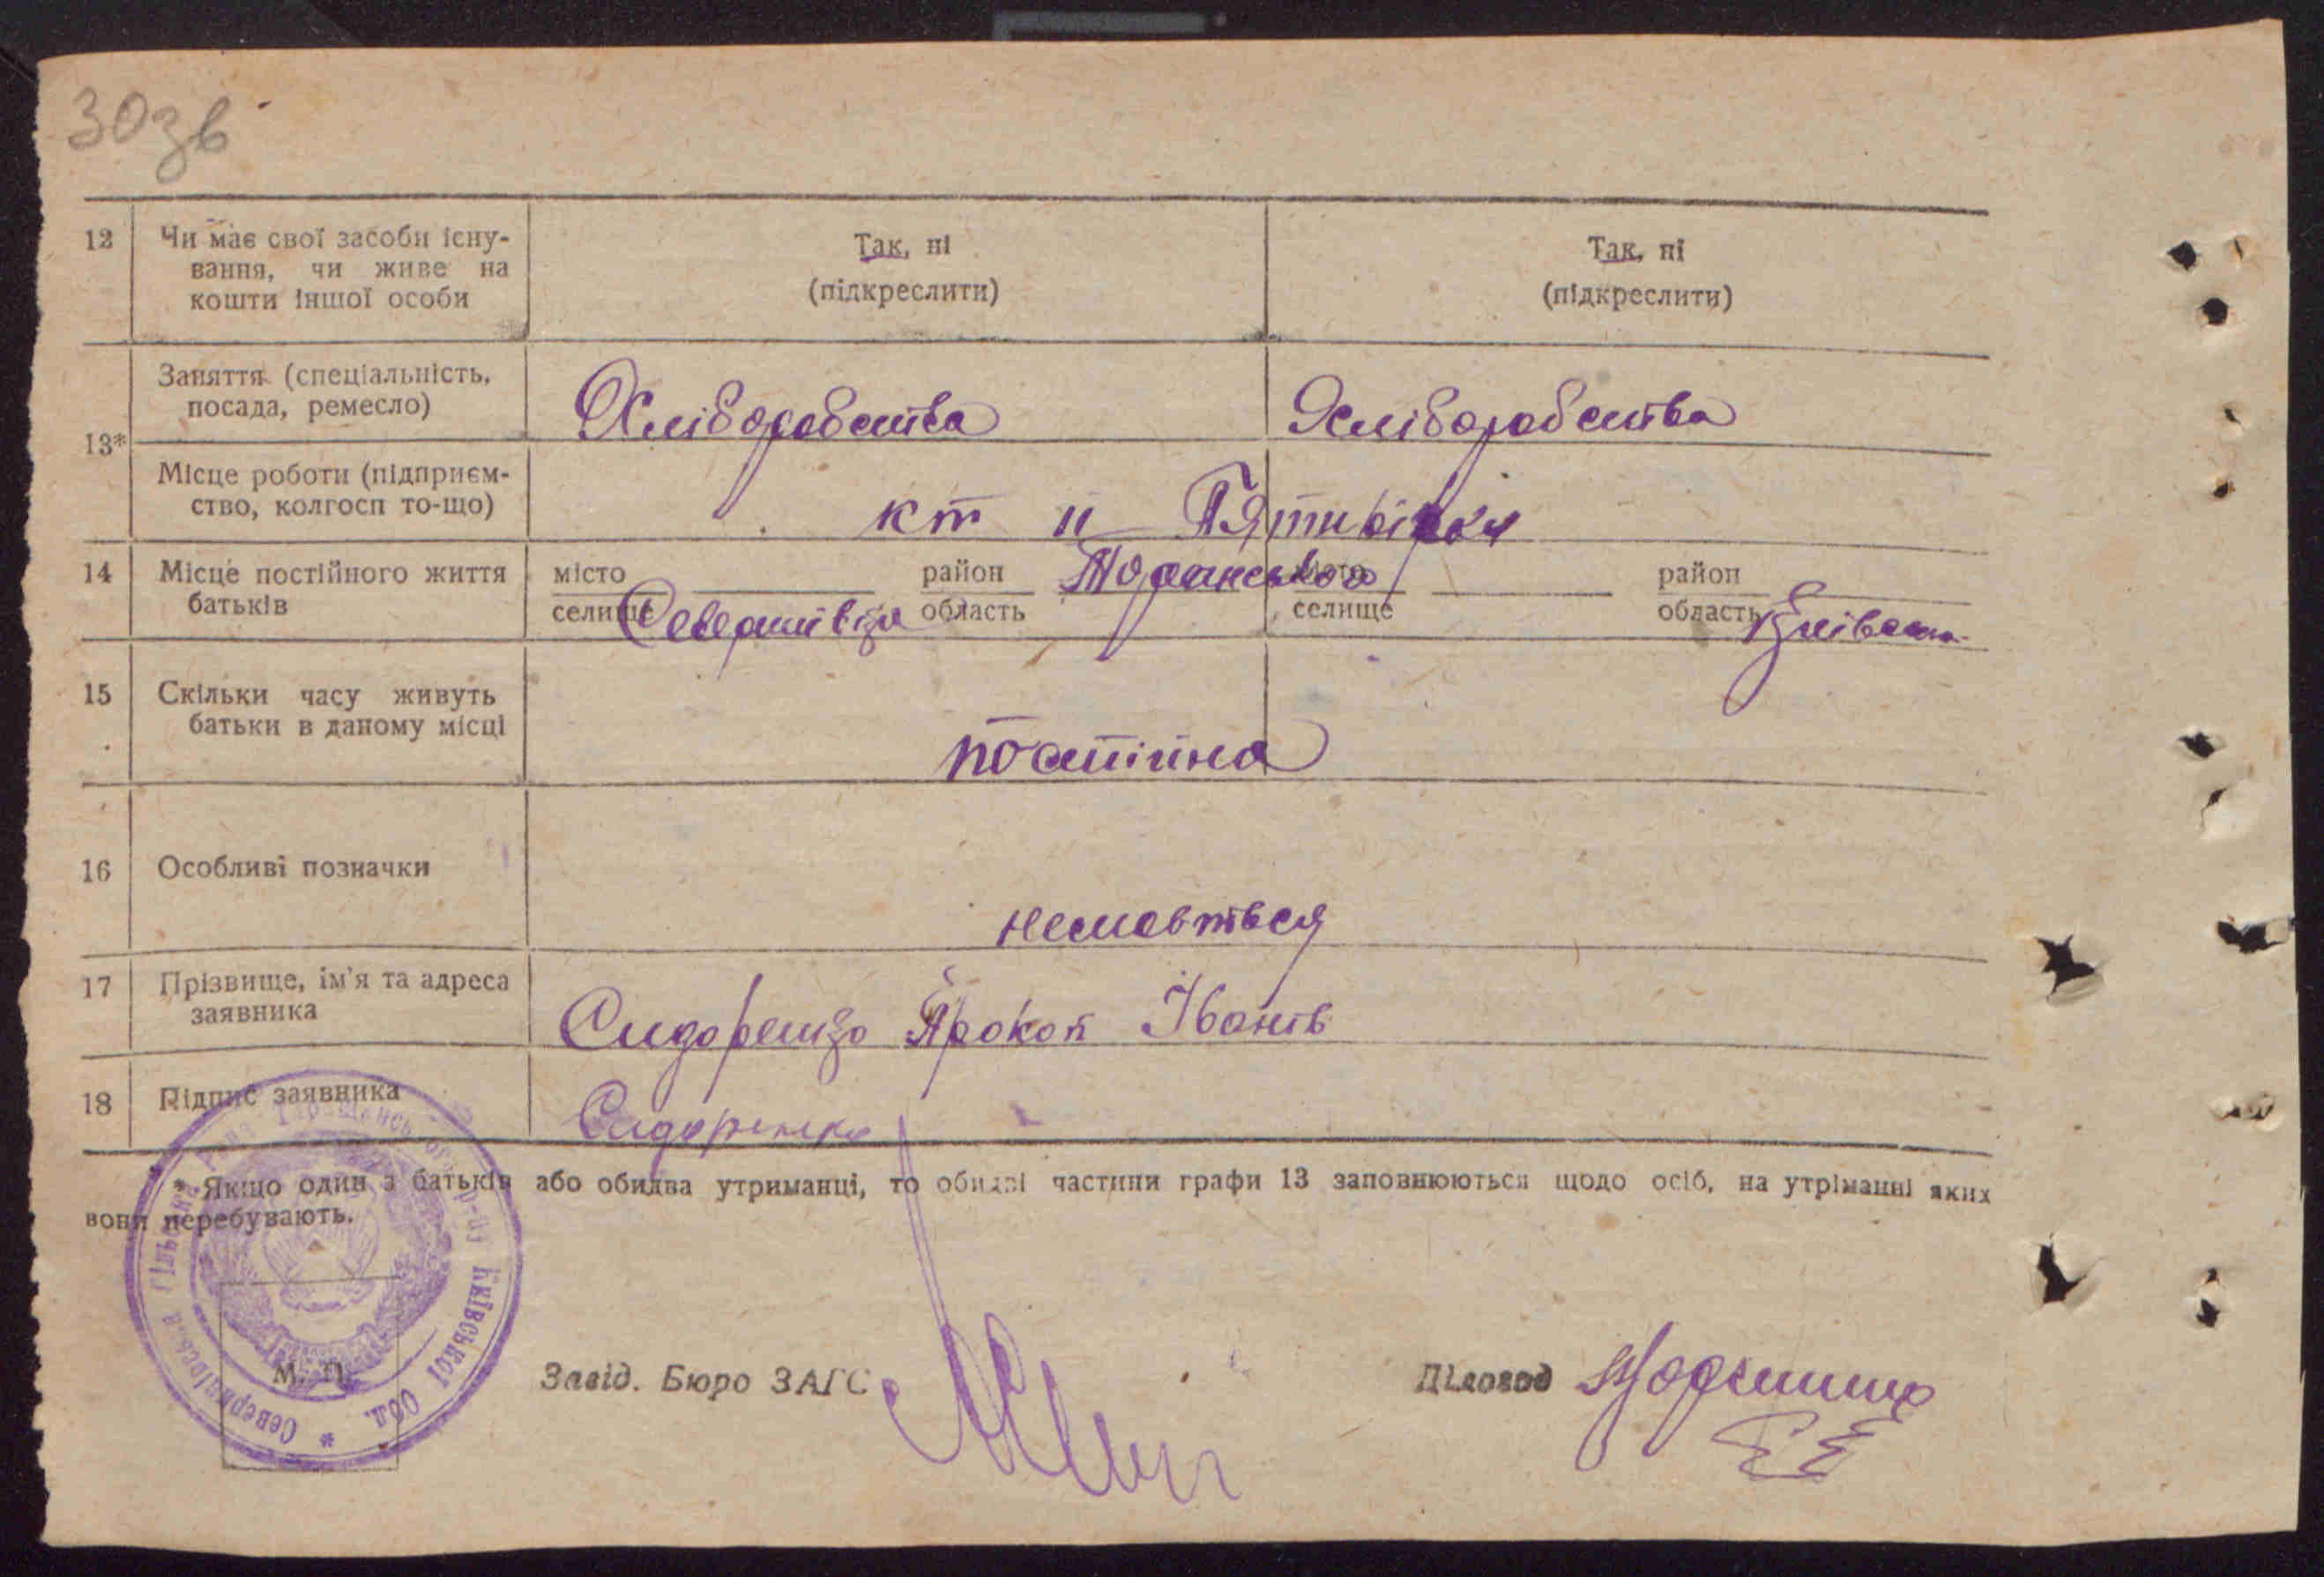 30зв
12 Чи має свої засоби існу-
вання, чи живе на
кошти іншої особи
Так, ні
(підкреслити)
Так, ні
(підкреслити)
13*
Заняття (спеціальність,
посада, ремесло)
Хліборобства
Хліборобства
Місце роботи (підприєм-
ство, колгосп то-що)
кт ІІ Пятирічки
14 Місце постійного життя
батьків
місто
селище
Северинівка
район
область
місто
селище
район
область
15 Скільки часу живуть
батьки в даному місці
постійна
16 Особливі позначки
17 Прізвище, ім'я та адреса
заявника
Сидоренко Прокоп Іванів
18 Підпис заявника
Сидоренко
* Якщо один з батьків або обидва утриманці, то обидві частини графи 13 заповнюються щодо осіб, на утріманні яких
вони перебувають.
Київської Обл. *
М. П.
Завід. Бюро ЗАГС
Діловод